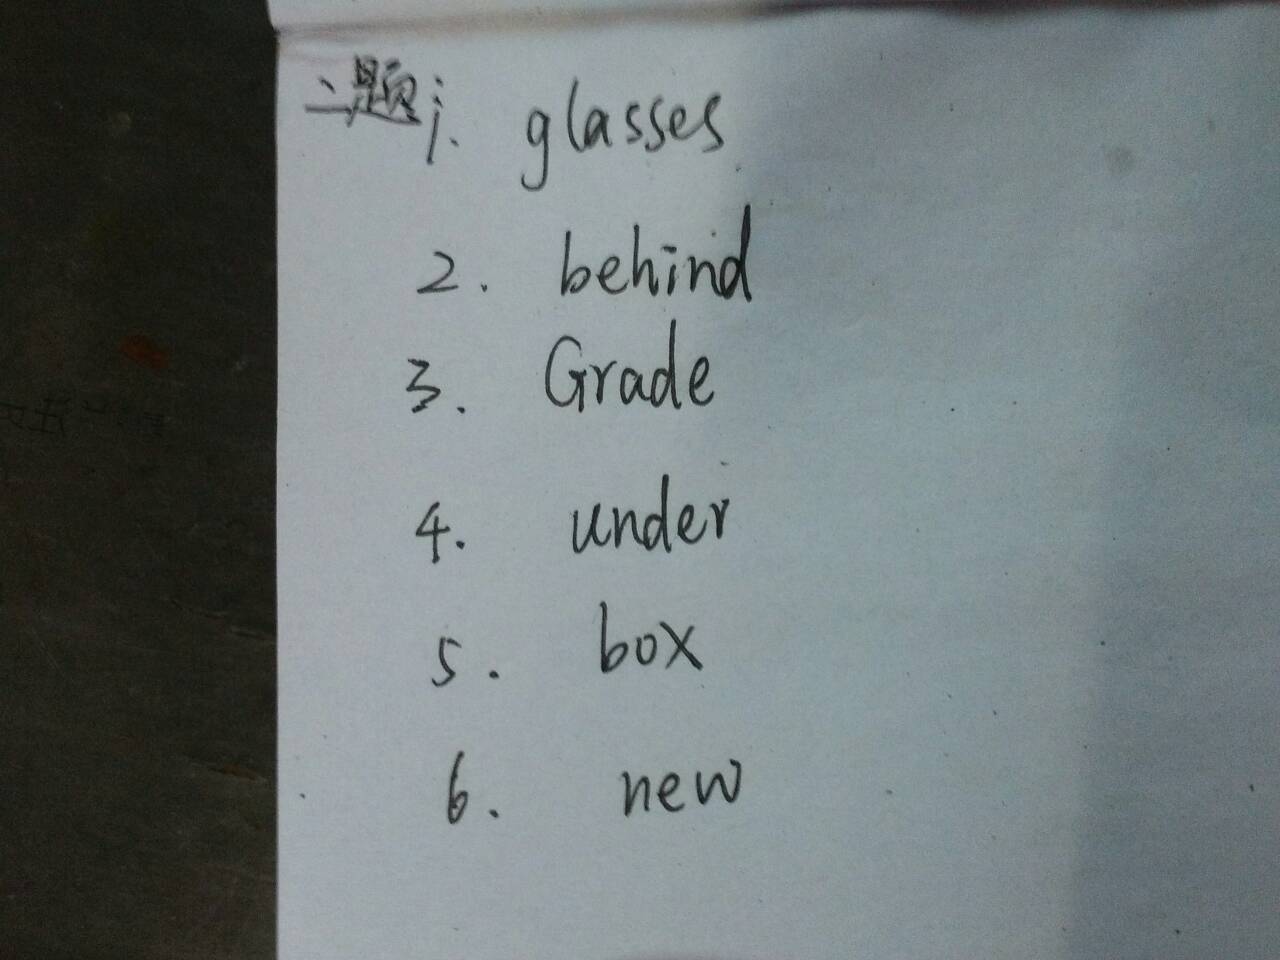 二题 1. glasses
2. behind
3. Grade
4. under
5. box
6. new